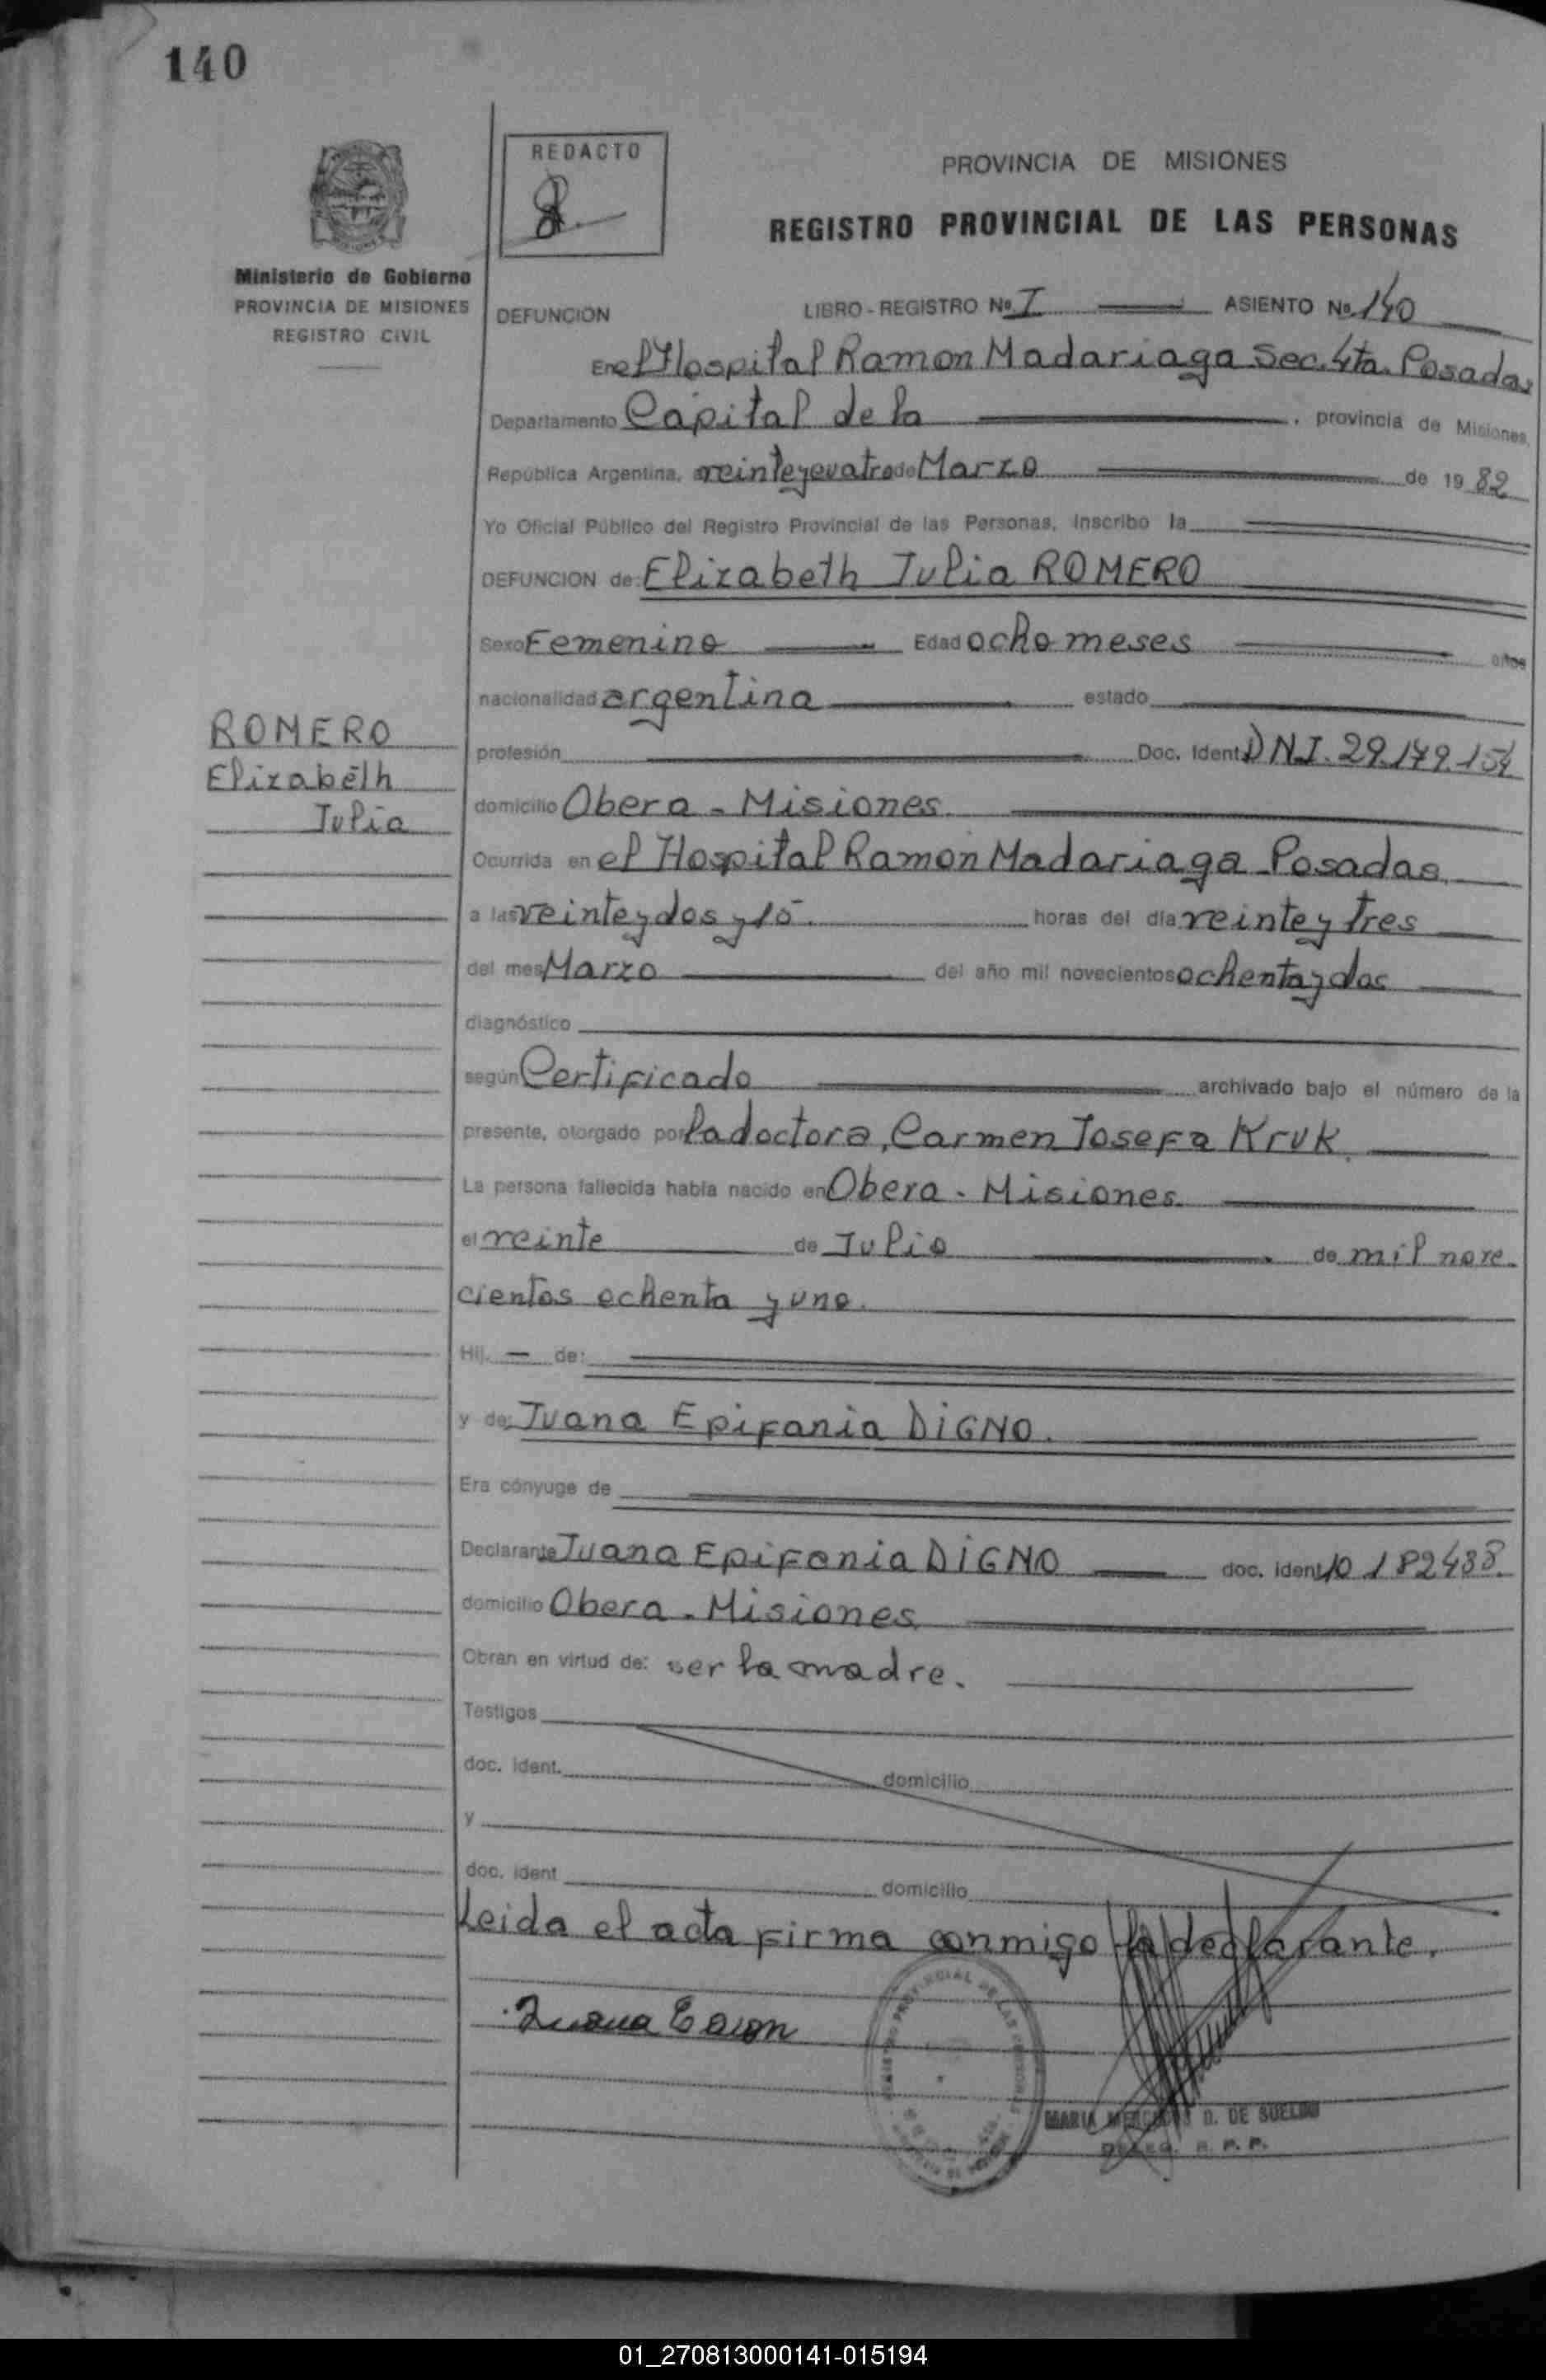 140
REDACTO
PROVINCIA DE MISIONES
REGISTRO PROVINCIAL DE LAS PERSONAS
Ministerio de Gobierno
PROVINCIA DE MISIONES
REGISTRO CIVIL
DEFUNCION LIBRO - REGISTRO No. I ASIENTO No. 140
En el Hospital Ramon Madariaga Sec. 4ta. Posadas
Departamento Capital de la , provincia de Misiones,
República Argentina, a veinteycuatro de Marzo de 1982
Yo Oficial Público del Registro Provincial de las Personas, Inscribo la
DEFUNCION de: Elizabeth Julia ROMERO
Sexo Femenino Edad ocho meses años
nacionalidad argentina estado
ROMERO
Elizabeth
Julia
profesión Doc. Ident. DNI. 29.179.154
domicilio Obera - Misiones.
Ocurrida en el Hospital Ramon Madariaga Posadas.
a las veinteydos y 15. horas del día veinte y tres
del mes Marzo del año mil novecientos ochenta y dos
diagnóstico
según Certificado archivado bajo el número de la
presente, otorgado por la doctora, Carmen Josefa Kruk.
La persona fallecida había nacido en Obera - Misiones.
el veinte de Julio de mil nove
cientos ochenta y uno.
Hij. — de:
y de: Juana Epifania DIGNO.
Era cónyuge de
Declarante Juana Epifania DIGNO doc. ident. 10182488.
domicilio Obera - Misiones
Obran en virtud de: ser la madre.
Testigos
doc. ident. domicilio
y
doc. ident domicilio
Leida el acta firma conmigo la declarante.
Juana
MARIA MERCEDES D. DE SUELDO
R. P. P.
01_270813000141-015194